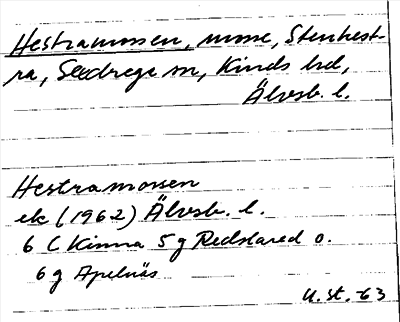 Hestramossen, mosse, Stenhest-
ra, Seedrega sn, Kinds hd,
Älvsb. l.
Hestramossen
ek (1962) Älvsb. l.
6 C Kinna 5 g Redslared o.
6 g Apelnäs
U. St. -63